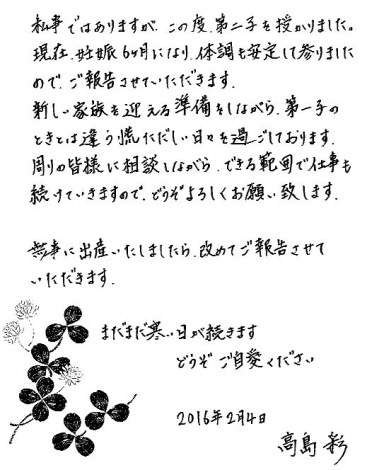 私事ではありますが、この度、第二子を授かりました。
現在、妊娠6ヶ月になり、体調も安定して参りました
ので、ご報告させていただきます。
新しい家族を迎える準備をしながら、第一子の
ときとは違う慌ただしい日々を過ごしております。
周りの皆様に相談しながら、できる範囲で仕事も
続けていきますので、どうぞよろしくお願い致します。
無事に出産いたしましたら、改めてご報告させて
いただきます。
まだまだ寒い日が続きます
どうぞ ご自愛ください
2016年2月4日
高島 彩